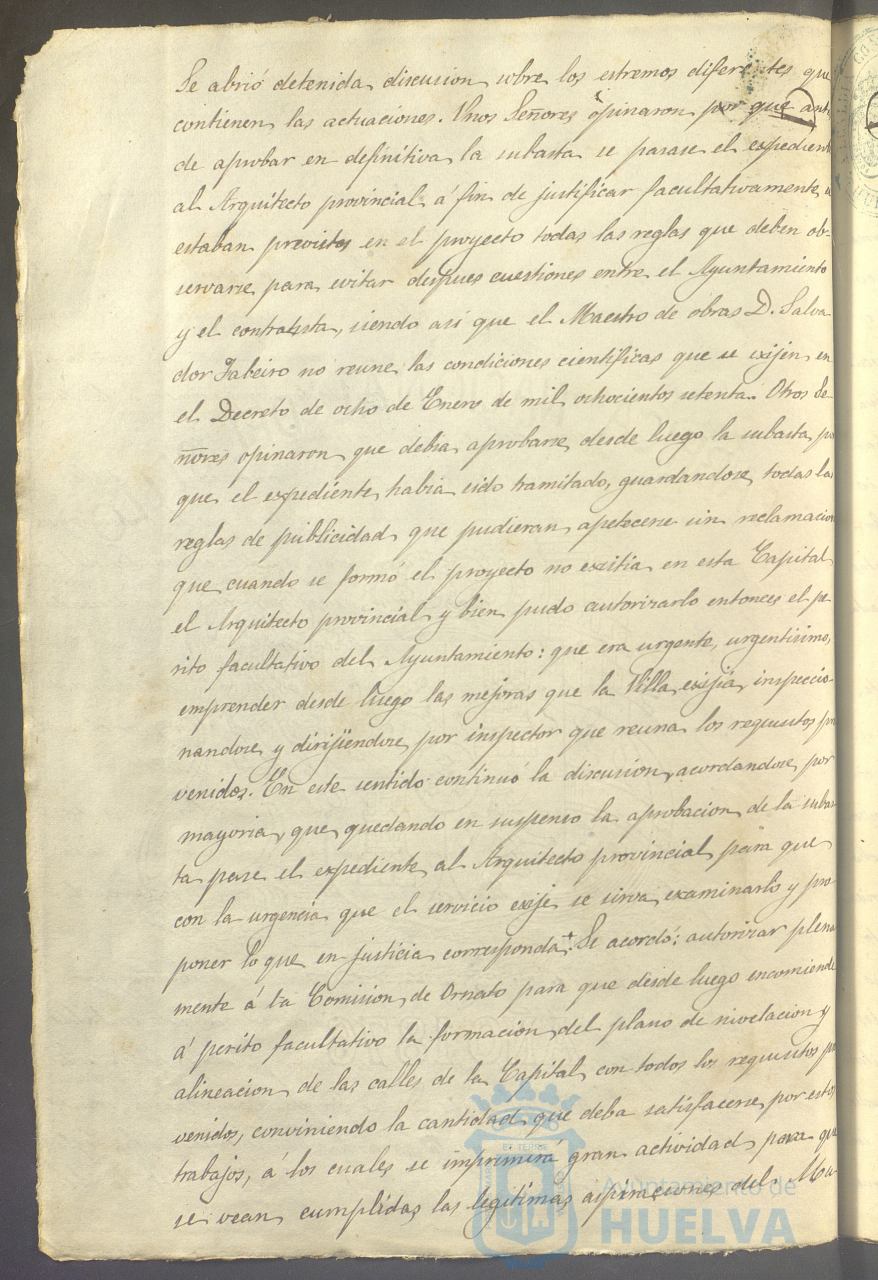 Se abrió detenida discusion sobre los estremos diferentes que
contienen las actuaciones. Unos Señores opinaron por que ant
de aprobar en definitiva la subasta se pasase el expedient
al Arquitecto provincial á fin de justificar facultativamente, si
estaban previstas en el proyecto todas las reglas que deben ob-
servarse para evitar despues cuestiones entre el Ayuntamiento
y el contratista, siendo así que el Maestro de obras D. Salva
dor Fabeiro no reune las condiciones científicas que se exijen en
el Decreto de ocho de Enero de mil ochocientos setenta. Otros Se-
ñores opinaron que debia aprobarse desde luego la subasta, po
que el expediente habia sido tramitado, guardandose todas las
reglas de publicidad que pudieran apetecerse sin reclamacion
que cuando se formó el proyecto no existia en esta Capital
el Arquitecto provincial y bien pudo autorizarlo entonces el pe-
rito facultativo del Ayuntamiento: que era urgente, urgentisimo,
emprender desde luego las mejoras que la Villa exijia, inspeccio-
nandose y dirijiendose por inspector que reuna los requisitos pre
venidos. En este sentido continuó la discusion, acordandose por
mayoria, que quedando en suspenso la aprobacion de la subas
ta pase el expediente al Arquitecto provincial para que
con la urgencia que el servicio exije se sirva examinarlo y pro-
poner lo que en justicia corresponda. Se acordó: autorizar plena
mente á la Comision de Ornato para que desde luego encomiende
á perito facultativo la formacion del plano de nivelacion y
alineacion de las calles de la Capital con todos los requisitos pre
venidos, conviniendo la cantidad que deba satisfacerse por estos
trabajos, á los cuales se imprimirá gran actividad para que
se vean cumplidas las legítimas aspiraciones del Mu-
Ayuntamiento de
HUELVA